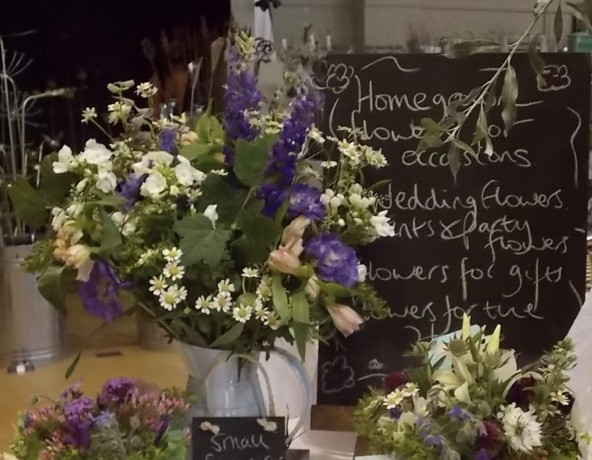 Homegrown
flowers for
occasions
Wedding flowers
nts & party
flowers
flowers for gifts
wers for the
Small